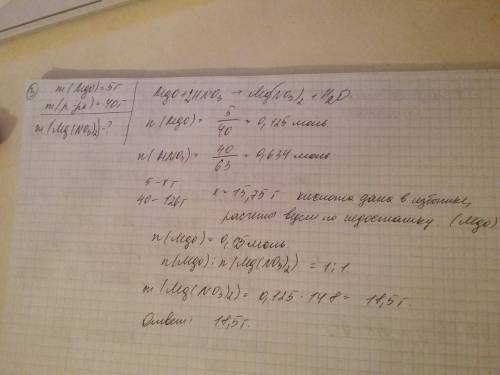 ③ m(MgO)=5г
m(р-ра)=40г
m(Mg(NO3)2)-?
MgO+2HNO3 → Mg(NO3)2 + H2O
n(MgO)= 5/40 = 0,125 моль.
n(HNO3)= 40/63 = 0,634 моль.
5-x г
40-126г x=15,75 г кислота дана в избытке,
расчёты ведём по недостатку. (MgO)
n(MgO)=0,125моль
n(MgO):n(Mg(NO3)2) = 1:1.
m(Mg(NO3)2)=0,125·148= 18,5г.
Ответ: 18,5г.